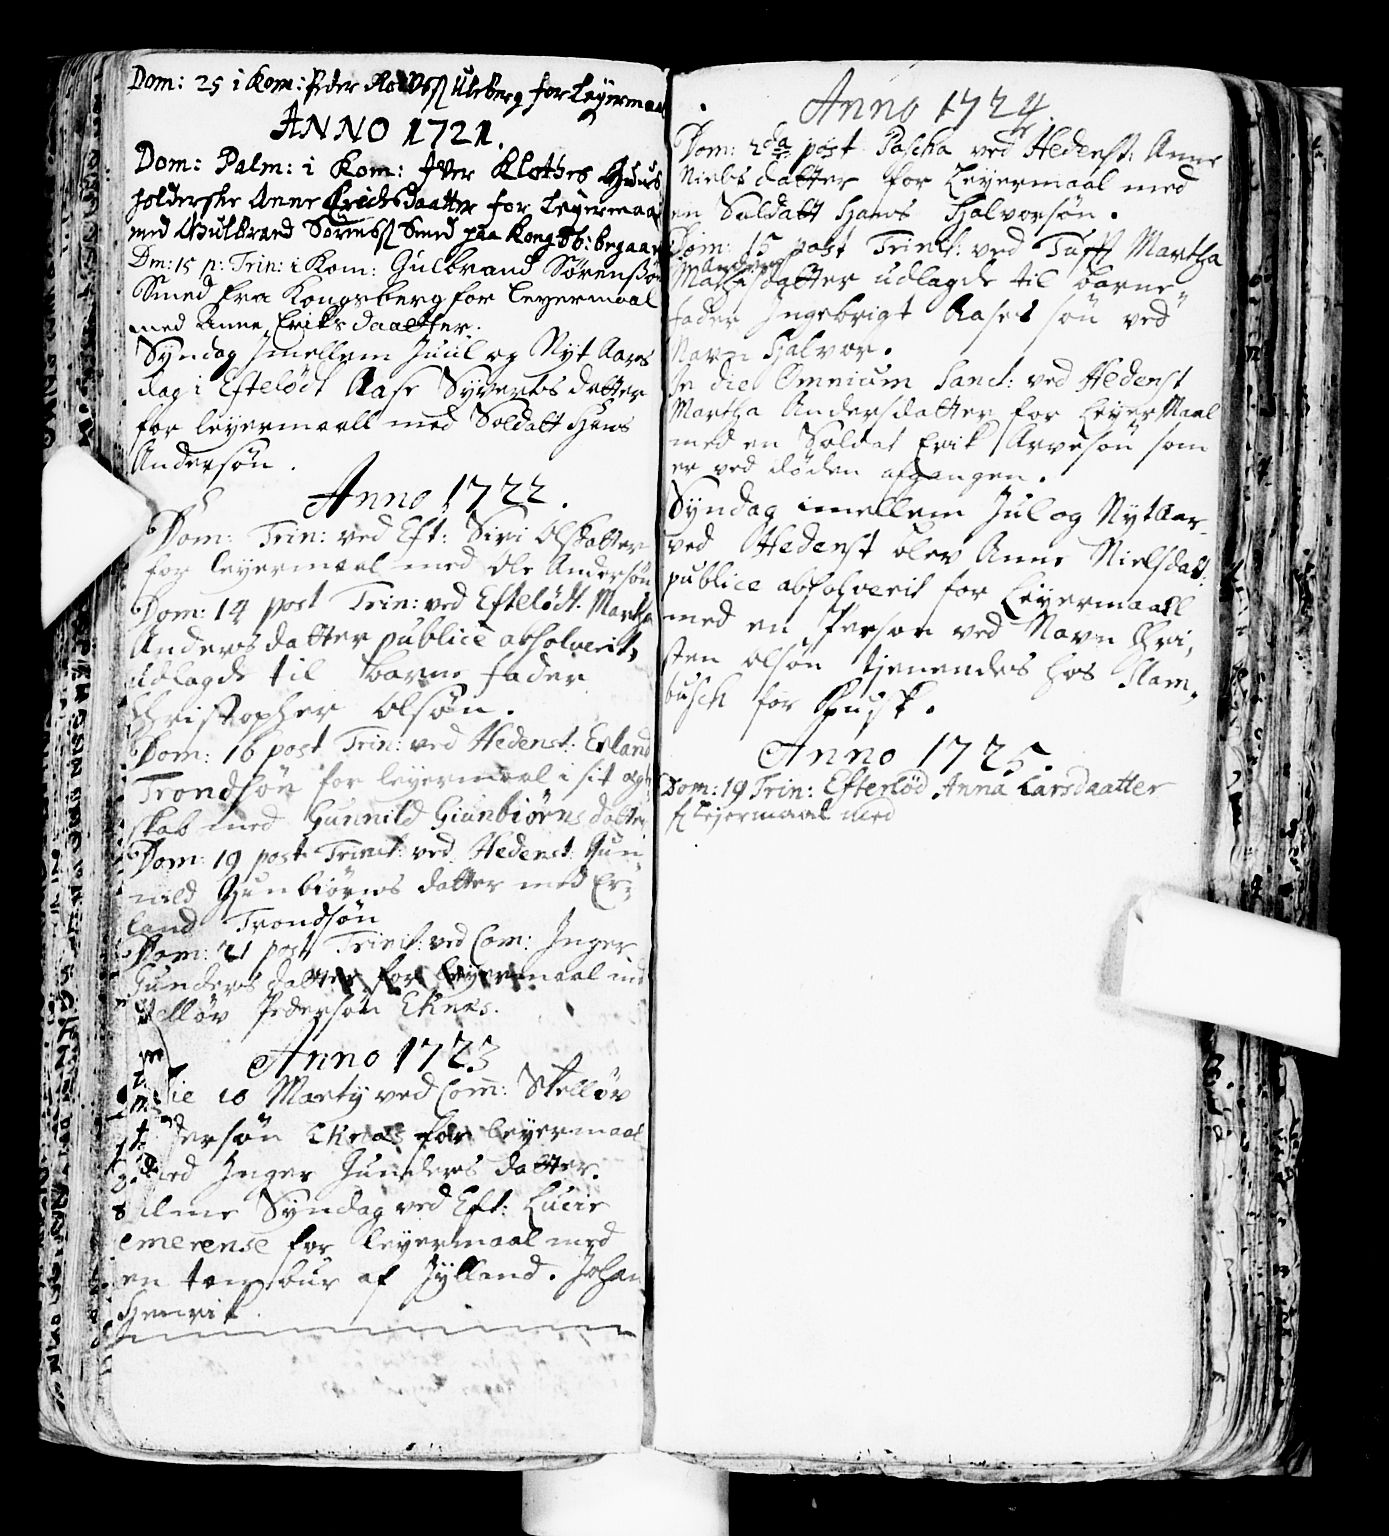 Dom: 25 i Kom: Peder Uleberg for Leyermaal
ANNO 1721.
Dom: Palm: i Kom: Iver Klothes Huus
holderske Anne Erichsdaatter for Leyermaal
med Gulbrand Sørensß Smed paa Kongsb: begaaet
Dm: 15 p: Trin: i Kom: Gulbrand Sørensßøn
Smed fra Kongsberg for Leyermaal
med Anne Eriks daatter.
Syndag Imellem Juul og Nyt Aars
dag i Efteløðt Aase Syverts datter
for leyermaall med Soldatt Hans
Andersøn.
Anno 1722.
Dom: Trin: ved Eft: Siri Olsdatter
for leyermaal med Ole Andersøn
Dom: 14 post Trin: ved Efteløðt. Martha
Anders datter publice absolverit,
udlagde til barne fader
Christopher Olsøn.
Dom: 16 post Trin: ved Hedenst: Erland
Trondsøn for leyermaal i sit ægte
skab med Gunnild Giunbiørns datter
Dom: 19 post Trinit: ved Hedenst: Gun
nild Gunbiørns datter med Er=
land Trondsøn
Dom: 21 post Trinit: ved Com: Inger
Gunders datter for leyermaal med
Stelløv Pedersøn Eknæs.
Anno 1723
Die 10 Marty ved Com: Stelløv
Pedersøn Eknæs for leyermaal
med Inger Gunders datter.
Samme Syndag ved Eft: Lucie
emerense for leyermaal med
en tambur af Jylland. Johan
Henrik.
Anno 1724.
Dom: 2da post Pascha ved Hedenst: Anne
Niels datter for Leyermaal med
en Soldatt Hans Halvorsøn.
Dom: 15 post Trinit: ved Tufft Martha
Anders
datter udlagde til barne
fader Ingebrigt søn ved
Navn Halvor.
In die Omnium Sanct: ved Hedenst
Martha Andersdatter for LeyerMaal
med en Soldat Erik Arvesøn som
er ved døden afgangen.
Syndag imellem Jul og NytAar
ved Hedenst blev Anne Nielsdat.
publice absolverit for Leyermaall
med en Person ved Navn Chri,
sten Olsøn tjenendes hos Slam,
busch for Kusk.
Anno 1725.
Dom: 19 Trin: Efterlød Anna Larsdaatter
f. Lejermaal med